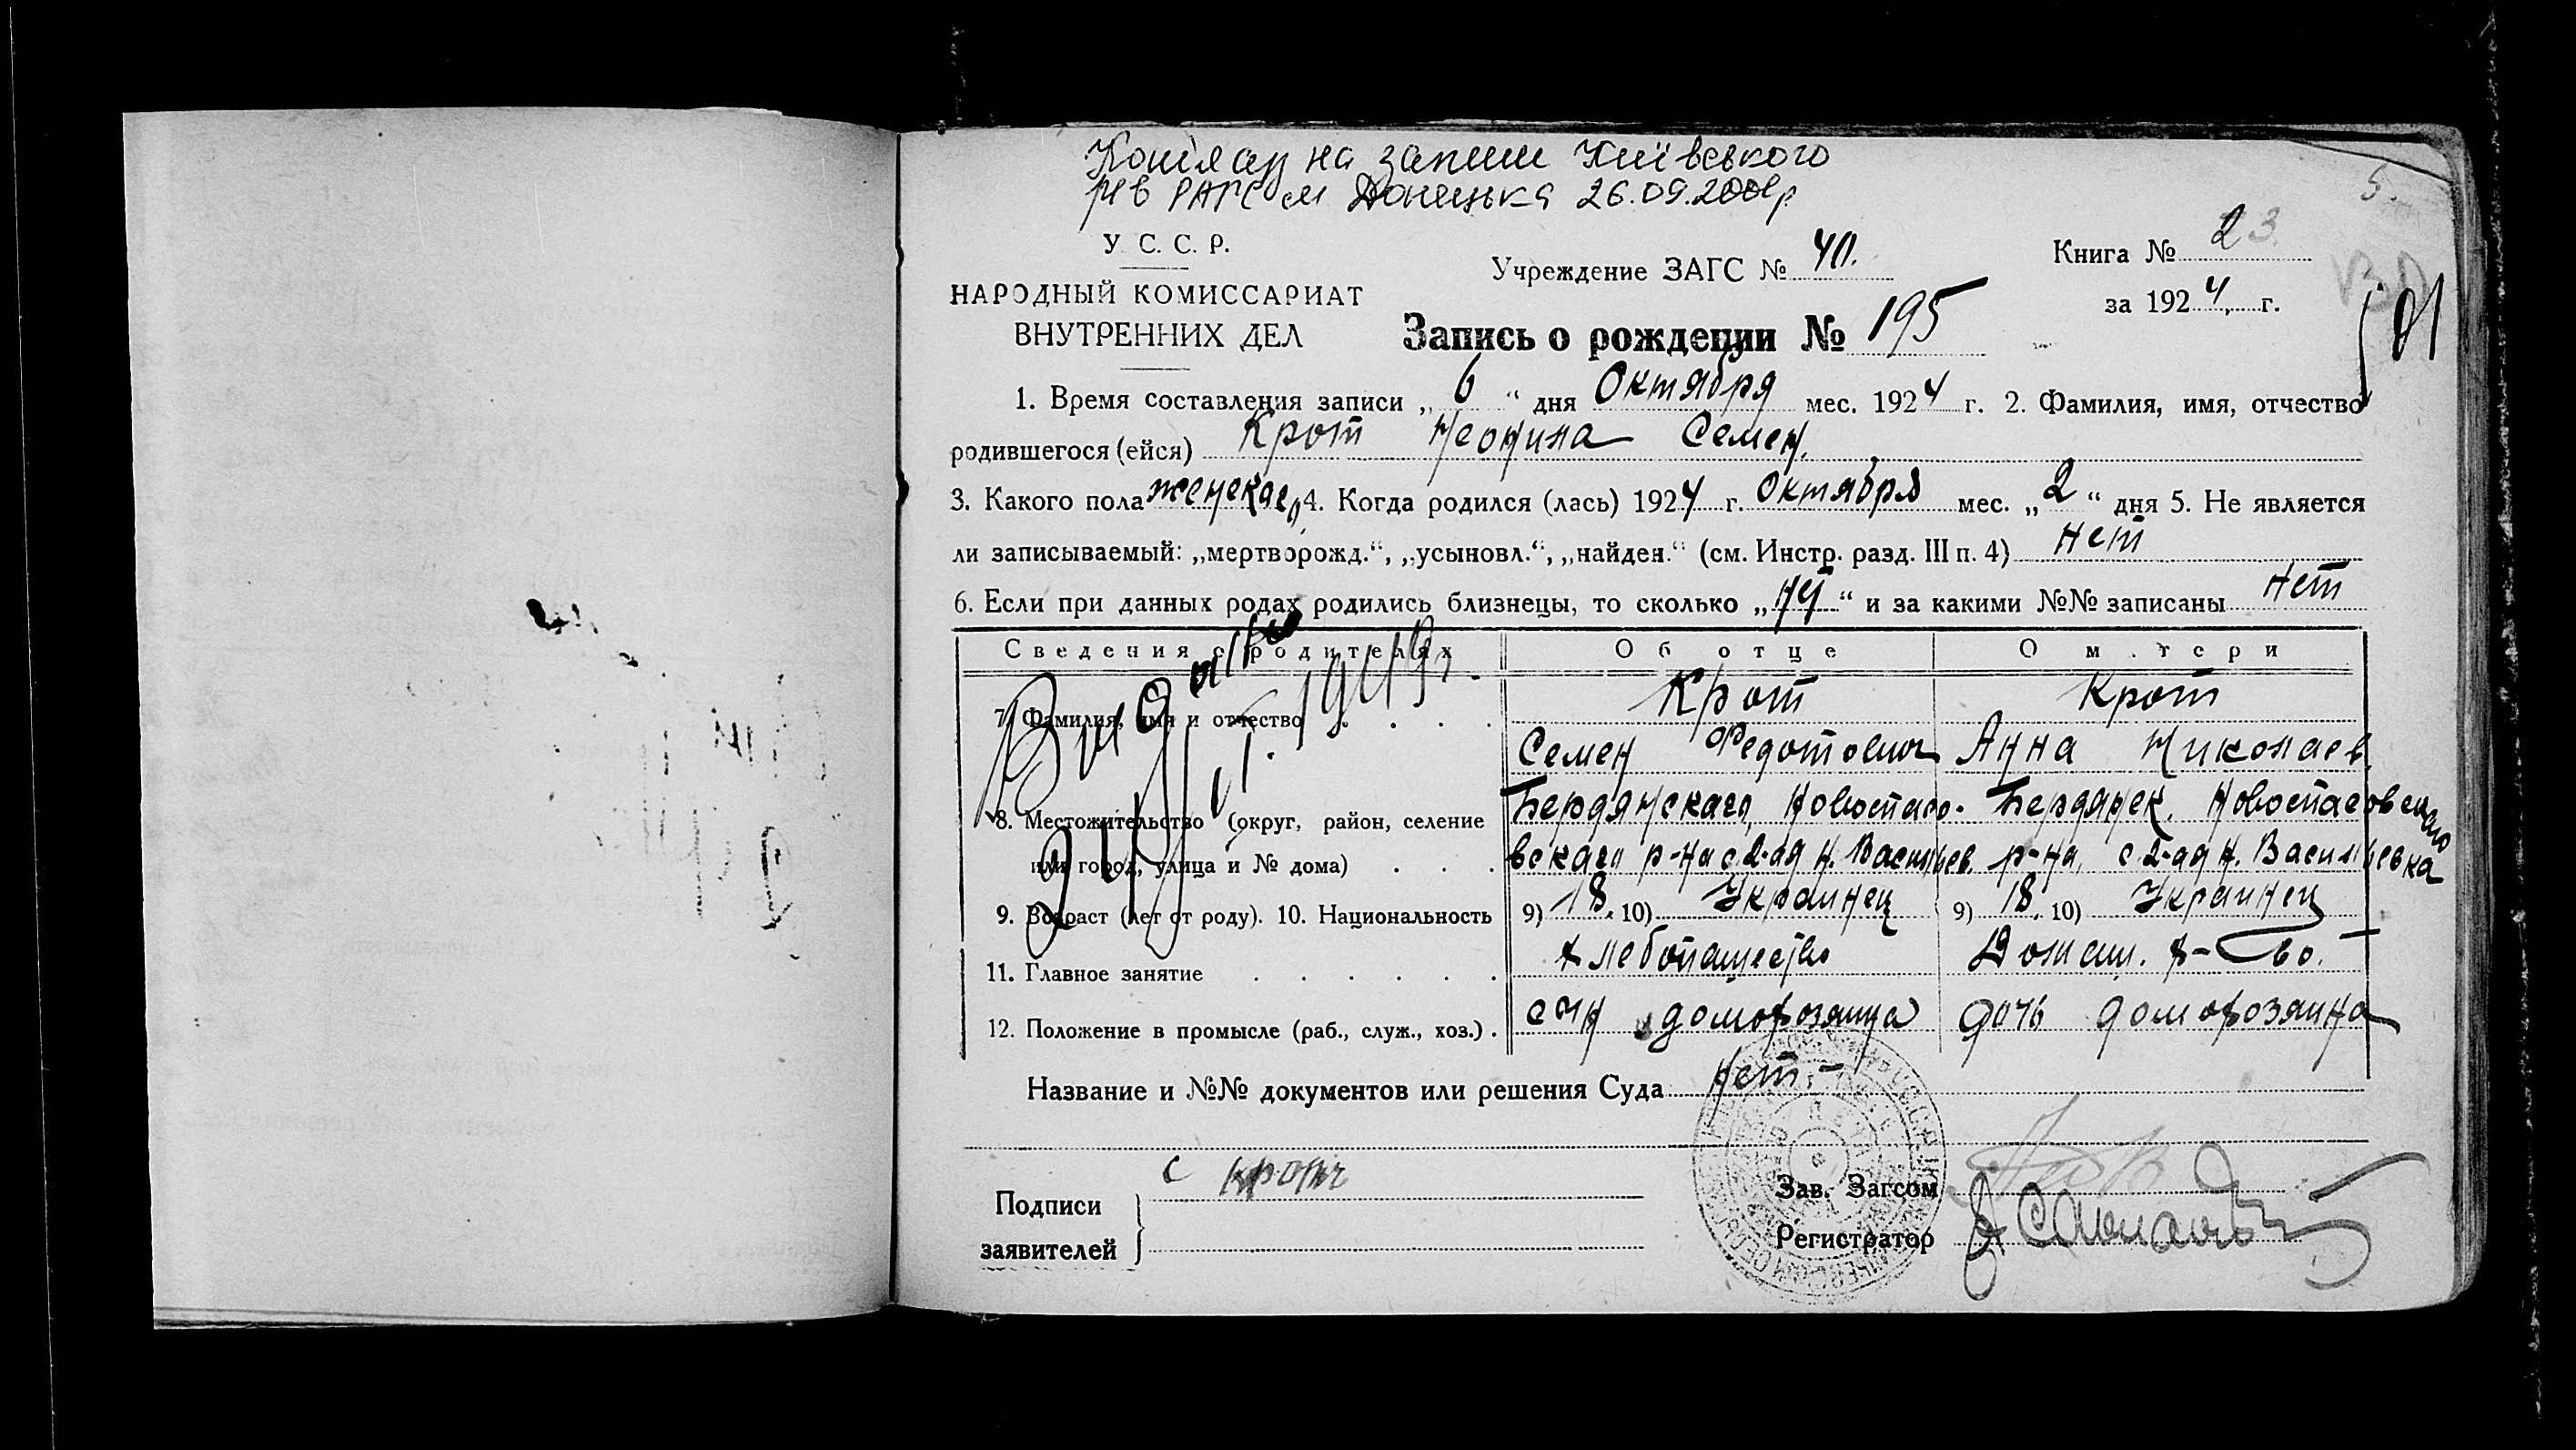 Копія ац на запит Київського
рв РАГС м Донецька 26.09.2001р
У. С. С. Р.
НАРОДНЫЙ КОМИССАРИАТ
ВНУТРЕННИХ ДЕЛ
Учреждение ЗАГС № 40.
Книга № 23
за 1924 г.
Запись о рождении № 195
1. Время составления записи „6“ дня Октября мес. 1924 г. 2. Фамилия, имя, отчество
родившегося (ейся) Крот Неонила Семен.
3. Какого пола женскаго 4. Когда родился (лась) 1924 г. Октября мес. „2“ дня 5. Не является
ли записываемый: „мертворожд.“, „усыновл.“, „найден.“ (см. Инстр. разд. III п. 4) нет
6. Если при данных родах родились близнецы, то сколько „нет“ и за какими №№ записаны нет
Сведения о родителях Об отце О матери
7. Фамилия, имя и отчество Крот Крот
Семен Федотович Анна Николаев.
8. Местожительство (округ, район, селение Бердянскаго, Новоспасо- Бердянск. Новоспасовскаго
или город, улица и № дома) вскаго р-на с. 2-ая Н. Васильев. р-на, с. 2-ая Н. Васильевка
9. Возраст (лет от роду). 10. Национальность 9) 18. 10) Украинец 9) 18. 10) Украинец
11. Главное занятие хлебопашество Домаш. х-во.
12. Положение в промысле (раб., служ., хоз.) сын домохозяина дочь домохозяина
Название и №№ документов или решения Суда нет.-
Подписи
заявителей
С Крот
Зав. Загсом
Регистратор